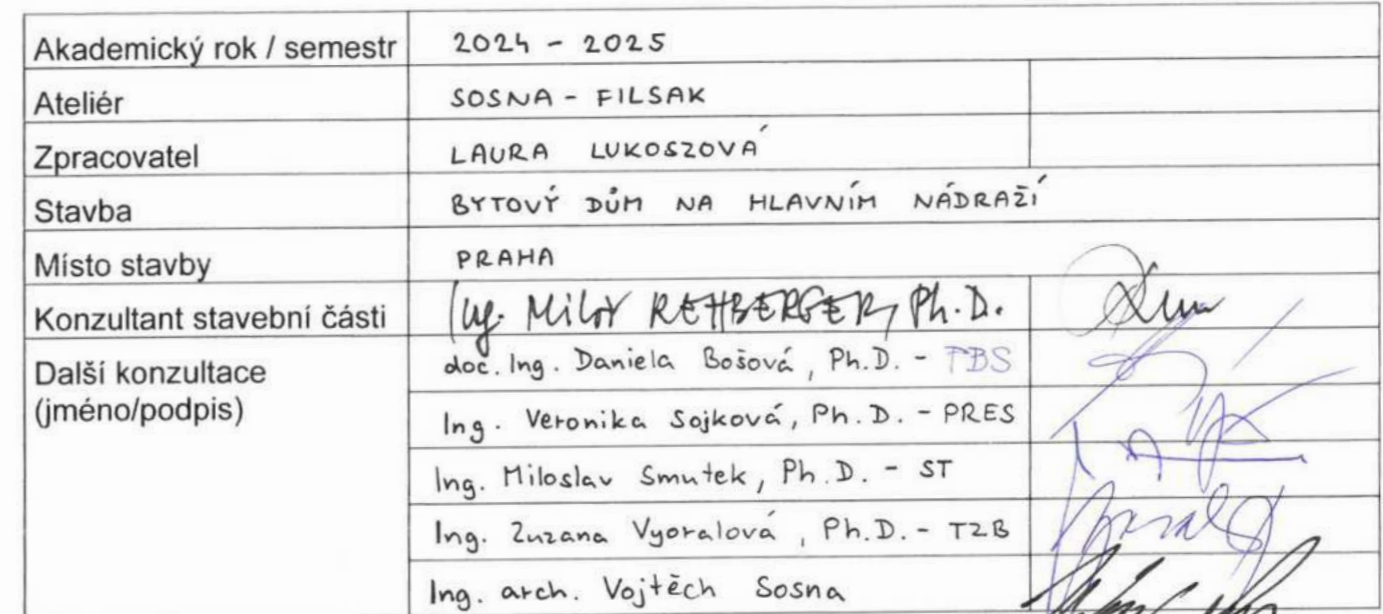 Akademický rok / semestr 2024 - 2025
Ateliér SOSNA - FILSAK
Zpracovatel LAURA LUKOSZOVÁ
Stavba BYTOVÝ DŮM NA HLAVNÍM NÁDRAŽÍ
Místo stavby PRAHA
Konzultant stavební části Ing. Miloš REHBERGER, Ph.D.
Další konzultace doc. Ing. Daniela Bošová, Ph.D. - PBS
(jméno/podpis)
Ing. Veronika Sojková, Ph.D. - PRES
Ing. Miloslav Smutek, Ph.D. - ST
Ing. Zuzana Vyoralová, Ph.D. - TZB
Ing. arch. Vojtěch Sosna